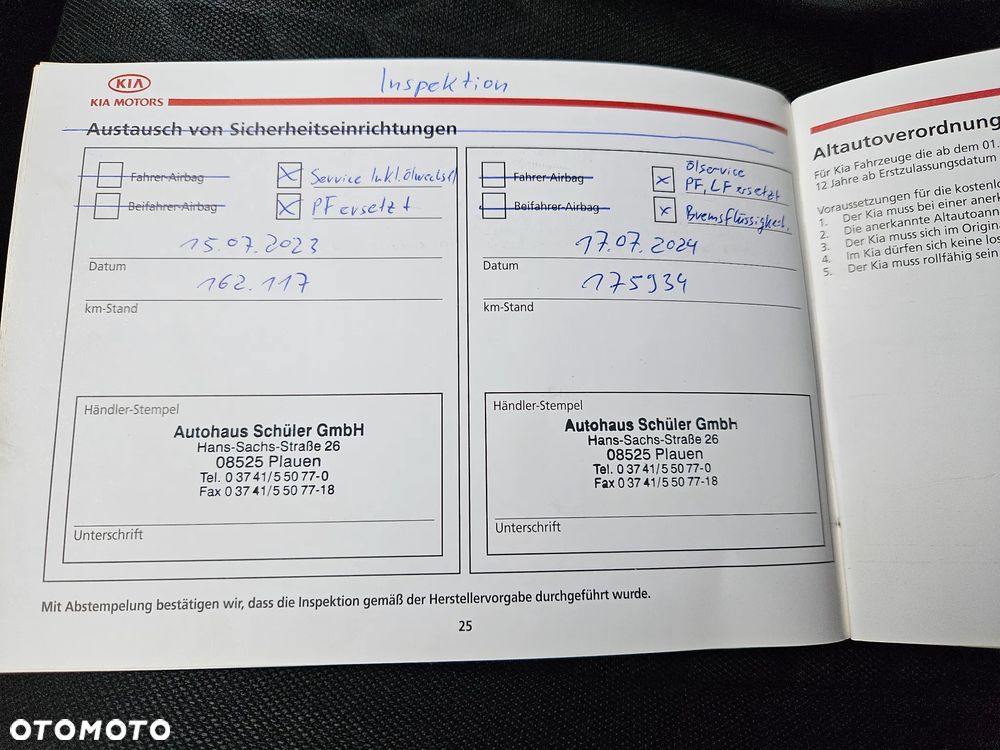 KIA
KIA MOTORS
Inspektion
Austausch von Sicherheitseinrichtungen
Fahrer-Airbag
Service Inkl. Ölwechsel
Beifahrer-Airbag
PF ersetzt
15.07.2023
Datum
162.117
km-Stand
Händler-Stempel
Autohaus Schüler GmbH
Hans-Sachs-Straße 26
08525 Plauen
Tel. 0 37 41/5 50 77-0
Fax 0 37 41/5 50 77-18
Unterschrift
Fahrer-Airbag
Ölservice
PF, LF ersetzt
Beifahrer-Airbag
Bremsflüssigkeit.
17.07.2024
Datum
175934
km-Stand
Händler-Stempel
Autohaus Schüler GmbH
Hans-Sachs-Straße 26
08525 Plauen
Tel. 0 37 41/5 50 77-0
Fax 0 37 41/5 50 77-18
Unterschrift
Mit Abstempelung bestätigen wir, dass die Inspektion gemäß der Herstellervorgabe durchgeführt wurde.
25
Altautoverordnung
Für Kia Fahrzeuge die ab dem 01.
12 Jahre ab Erstzulassungsdatum
Voraussetzungen für die kostenlo
1. Der Kia muss bei einer anerk
2. Die anerkannte Altautoann
3. Der Kia muss sich im Origina
4. Im Kia dürfen sich keine los
5. Der Kia muss rollfähig sein
OTOMOTO